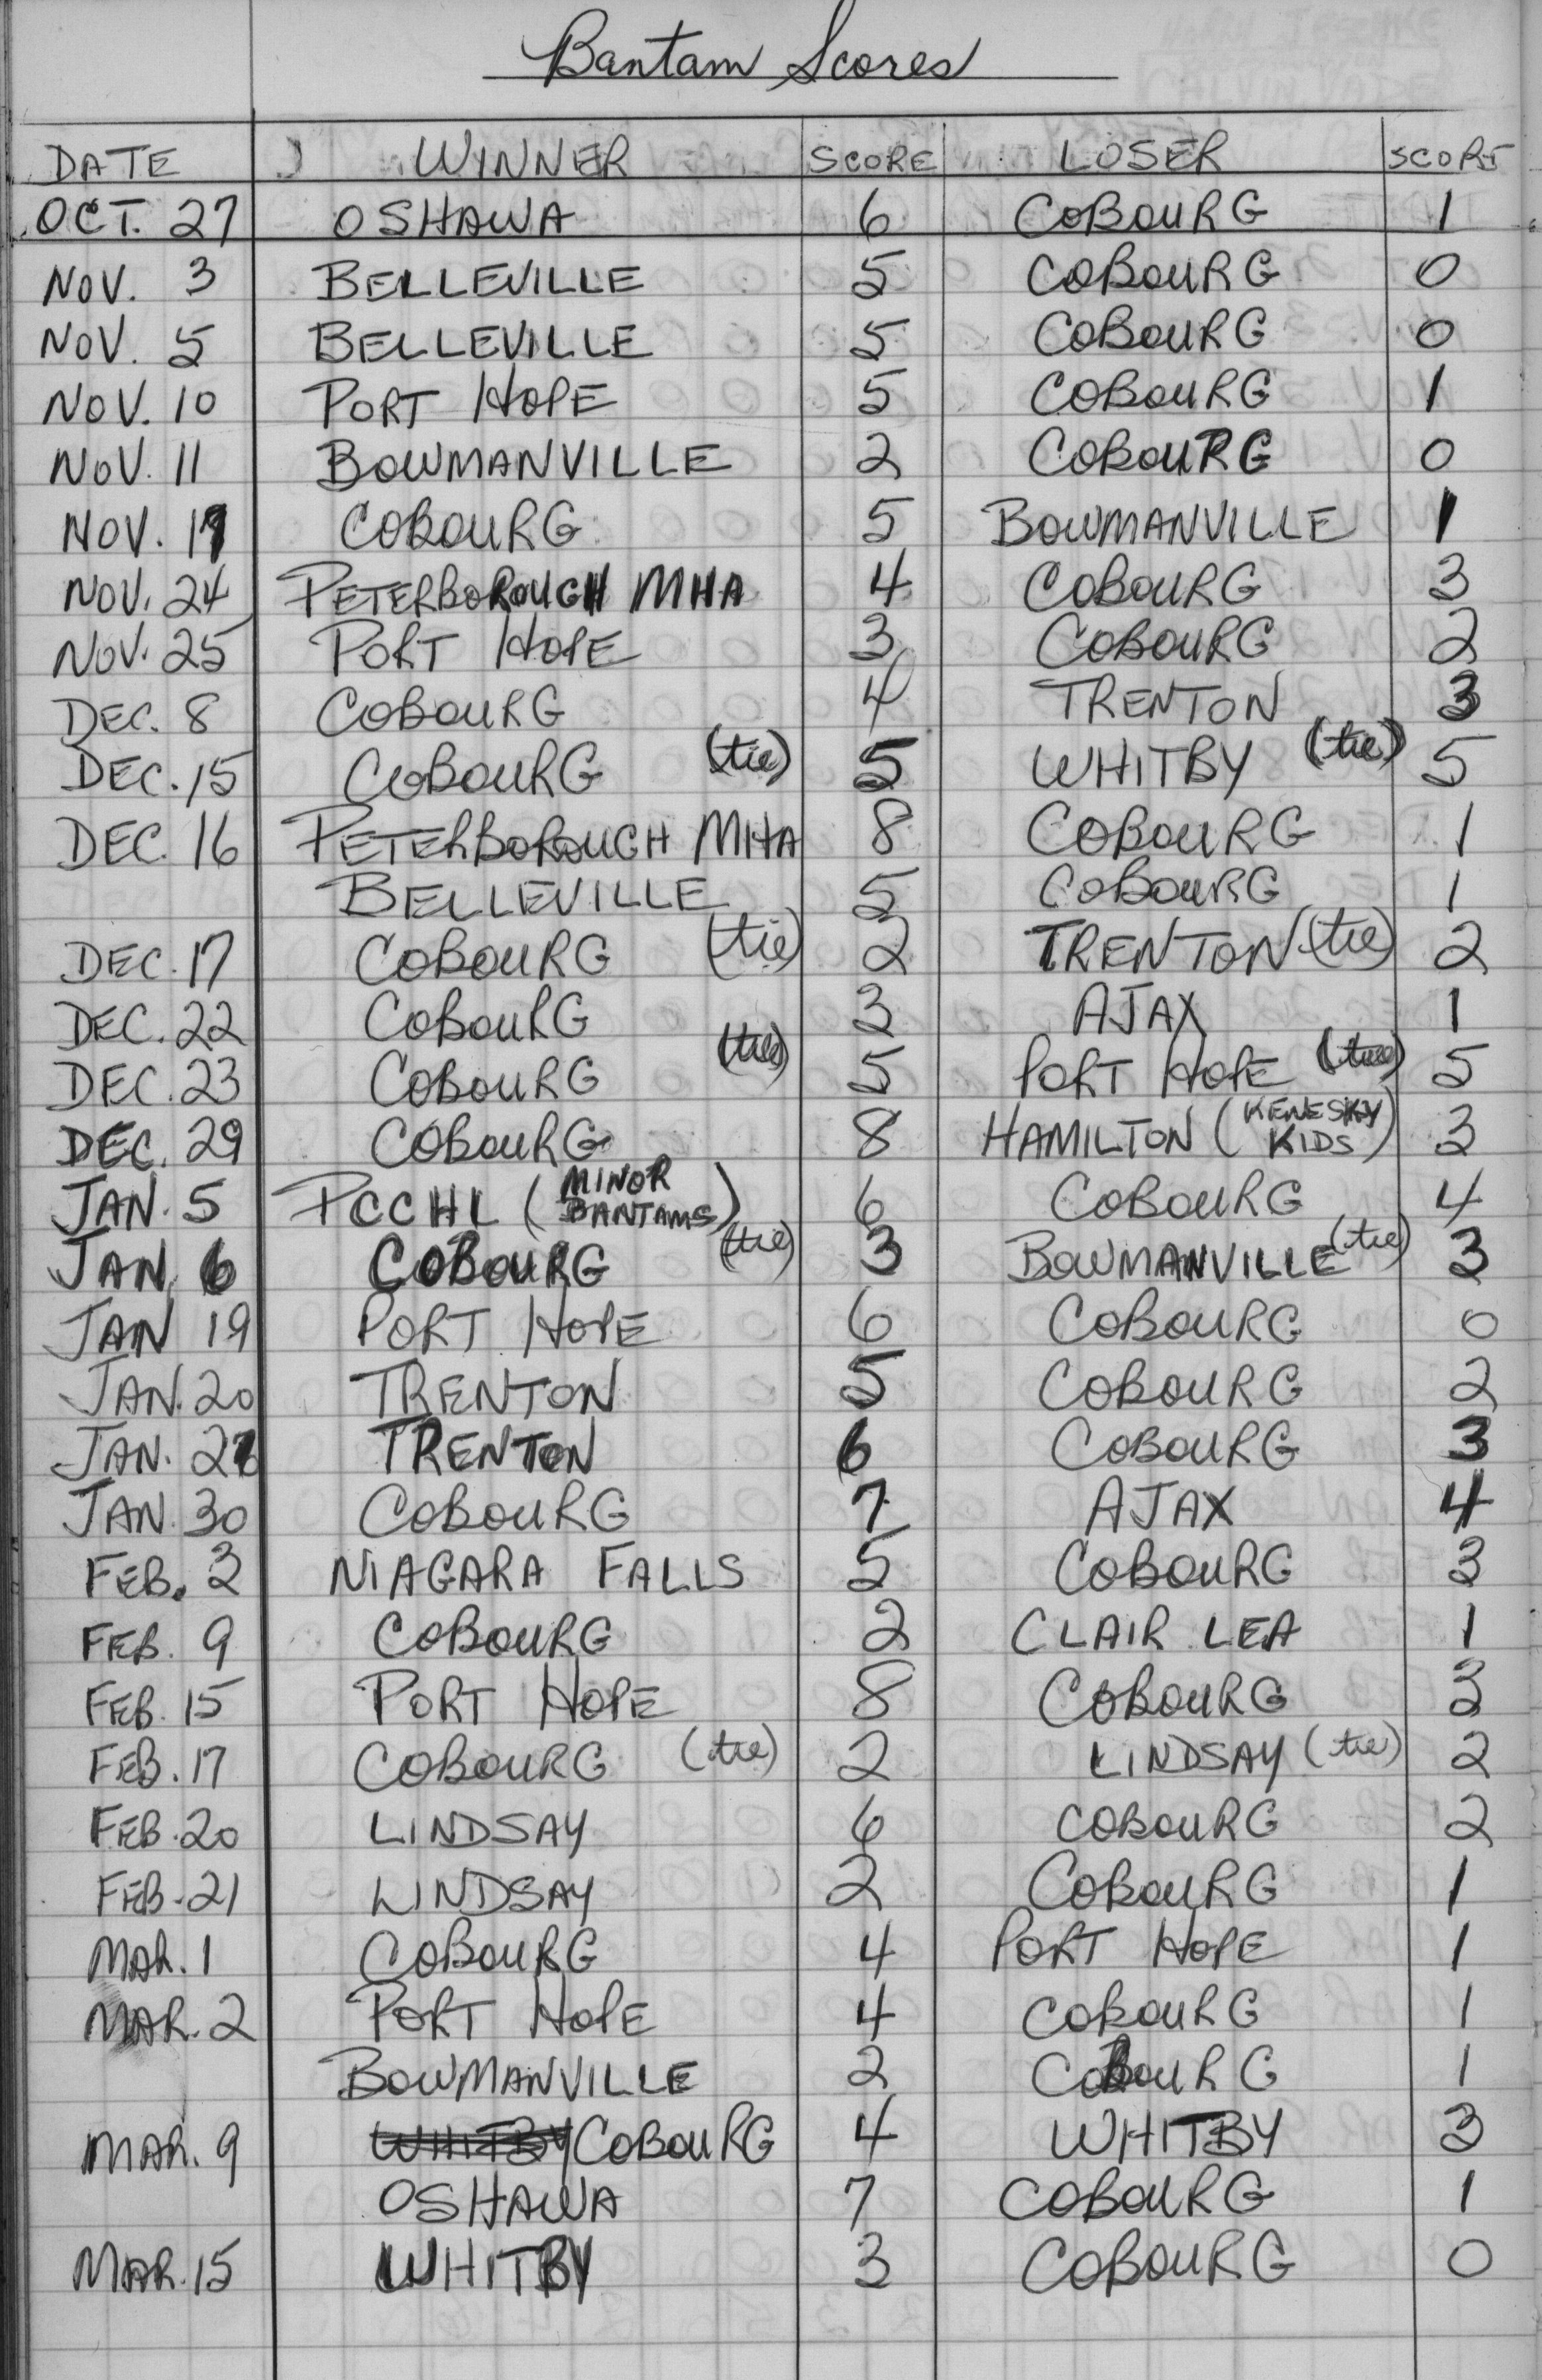 Bantam Scores
DATE WINNER SCORE LOSER SCORE
OCT. 27 OSHAWA 6 COBOURG 1
NOV. 3 BELLEVILLE 5 COBOURG 0
NOV. 5 BELLEVILLE 5 COBOURG 0
NOV. 10 PORT HOPE 5 COBOURG 1
NOV. 11 BOWMANVILLE 2 COBOURG 0
NOV. COBOURG 5 BOWMANVILLE 1
NOV. 24 PETERBOROUGH MHA 4 COBOURG 3
NOV. 25 PORT HOPE 3 COBOURG 2
DEC. 8 COBOURG 4 TRENTON 3
DEC. 15 COBOURG (tie) 5 WHITBY (tie) 5
DEC. 16 PETERBOROUGH MHA 8 COBOURG 1
BELLEVILLE 5 COBOURG 1
DEC. 17 COBOURG (tie) 2 TRENTON (tie) 2
DEC. 22 COBOURG 3 AJAX 1
DEC. 23 COBOURG (tie) 5 PORT HOPE (tie) 5
DEC. 29 COBOURG 8 HAMILTON (KENESKY KIDS) 3
JAN. 5 PCCHL (MINOR BANTAMS) 6 COBOURG 4
JAN. 6 COBOURG (tie) 3 BOWMANVILLE (tie) 3
JAN 19 PORT HOPE 6 COBOURG 0
JAN. 20 TRENTON 5 COBOURG 2
JAN. TRENTON 6 COBOURG 3
JAN. 30 COBOURG 7 AJAX 4
FEB. 3 NIAGARA FALLS 5 COBOURG 3
FEB. 9 COBOURG 2 CLAIR LEA 1
FEB. 15 PORT HOPE 8 COBOURG 3
FEB. 17 COBOURG (tie) 2 LINDSAY (tie) 2
FEB. 20 LINDSAY 6 COBOURG 2
FEB. 21 LINDSAY 2 COBOURG 1
MAR. 1 COBOURG 4 PORT HOPE 1
MAR. 2 PORT HOPE 4 COBOURG 1
BOWMANVILLE 2 COBOURG 1
MAR. 9 WHITBY COBOURG 4 WHITBY 3
OSHAWA 7 COBOURG 1
MAR. 15 WHITBY 3 COBOURG 0